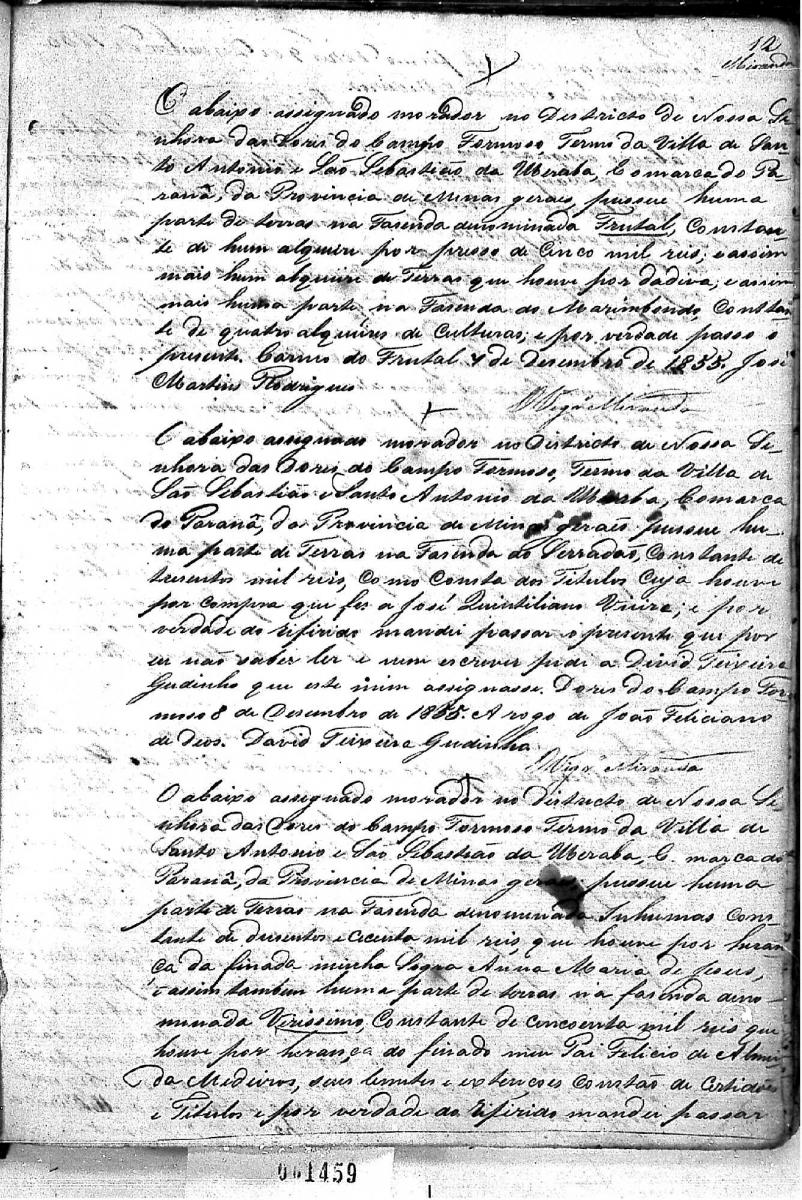 12
Miranda
O abaixo assignado morador no Districto de Nossa Se-
nhora das Dores do Campo Formoso, Termo da Villa de San-
to Antonio e São Sebastião da Uberaba, Comarca do Pa-
ranã, da Provincia de Minas geraes, pussue huma
parte de terras na Fasenda denominada Frutal, Constan-
te de hum alqueire por presso de Cinco mil reis; e assim
mais hum alqueire de Terras que houve por dadiva; e assim
mais huma parte na Fasenda do Marimbondo, Constan-
te de quatro alqueires de Culturas; e por verdade passo o
presente. Carmo do Frutal 4 de Desembro de 1855. José
Martins Rodrigues
Miranda
O abaixo assignado morador no Districto de Nossa Se-
nhora das Dores do Campo Formoso, Termo da Villa de
São Sebastião e Santo Antonio da Uberaba, Comarca
do Paranã, da Provincia de Minas geraes pussue hu-
ma parte de Terras na Fasenda do Serradão, Constante de
tresentos mil reis, Como Consta dos Titulos Cuja houve
por compra que fes a José Quintiliano Vieira; e por
verdade do refirido mandei passar o presente que por
eu não saber ler e nem escrever pidi a David Teixeira
Gudinho que este mim assignasse. Dores do Campo For-
moso 8 de Desembro de 1855. A rogo de João Feliciano
de Deos. David Teixeira Gudinho
Miranda
O abaixo assignado morador no Districto de Nossa Se-
nhora das Dores do Campo Formoso Termo da Villa de
Santo Antonio e São Sebastião da Uberaba, C. marca do
Paranã, da Provincia de Minas geraes pussue huma
parte de Terras na Fasenda denominada Inhumas Cons-
tante de dusentos e cecenta mil reis, que houve por heran-
ça da finada minha Sogra Anna Maria de Jesus,
e assim tambem huma parte de terras na fasenda deno-
minada Verissimo, Constante de cincoenta mil reis que
houve por herança do finado meu Pai Felicio de Almei-
da Medeiros, seus lemites e extenções constão de Certidões
e Titulos e por verdade do refirido mandei passar
001459